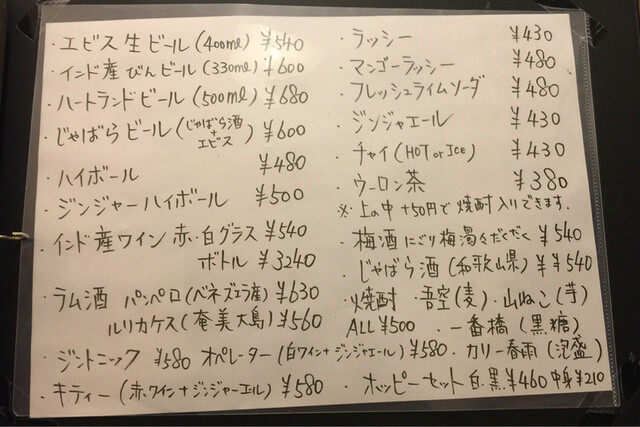 ・エビス生ビール(400ml) ¥540
・インド産びんビール(330ml) ¥600
・ハートランドビール(500ml) ¥680
・じゃばらビール(じゃばら酒+エビス) ¥600
・ハイボール ¥480
・ジンジャーハイボール ¥500
・インド産ワイン 赤・白グラス ¥540
ボトル ¥3240
・ラム酒 パンペロ(ベネズエラ産) ¥630
ルリカケス(奄美大島) ¥560
・ジントニック ¥580 オペレーター(白ワイン+ジンジャエール) ¥580
・キティー(赤ワイン+ジンジャーエル) ¥580
・ラッシー ¥430
・マンゴーラッシー ¥480
・フレッシュライムソーダ ¥480
・ジンジャエール ¥430
・チャイ(HOT or ICE) ¥430
・ウーロン茶 ¥380
※上の中+50円で焼酎入りできます.
・梅酒 にごり梅濁々だくだく ¥540
・じゃばら酒(和歌山県) ¥¥540
・焼酎 吾空(麦)・山ねこ(芋)
ALL ¥500 ・一番橋(黒糖)
・カリー春雨(泡盛)
・ホッピーセット 白・黒 ¥460 中身 ¥210